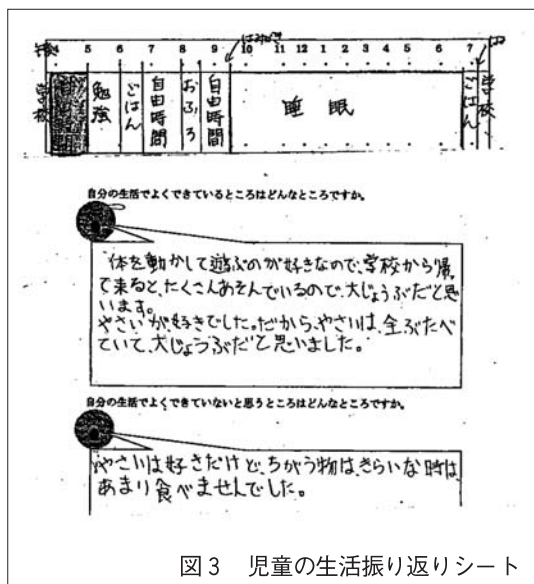 はみがき
午後4 5 6 7 8 9 10 11 12 1 2 3 4 5 6 7 は
学校 勉強 ごはん 自由時間 おふろ 自由時間 睡眠 ごはん 学校
自分の生活でよくできているところはどんなところですか。
体を動かして遊ぶのが好きなので、学校から帰っ
て来ると、たくさんあそんでいるので、大じょうぶだと思
います。
やさいが、好きでした。だから、やさいは、全ぶたべ
ていて、大じょうぶだと思いました。
自分の生活でよくできていないと思うところはどんなところですか。
やさいは好きだけど、ちがう物は、きらいな時は、
あまり食べませんでした。
図3 児童の生活振り返りシート